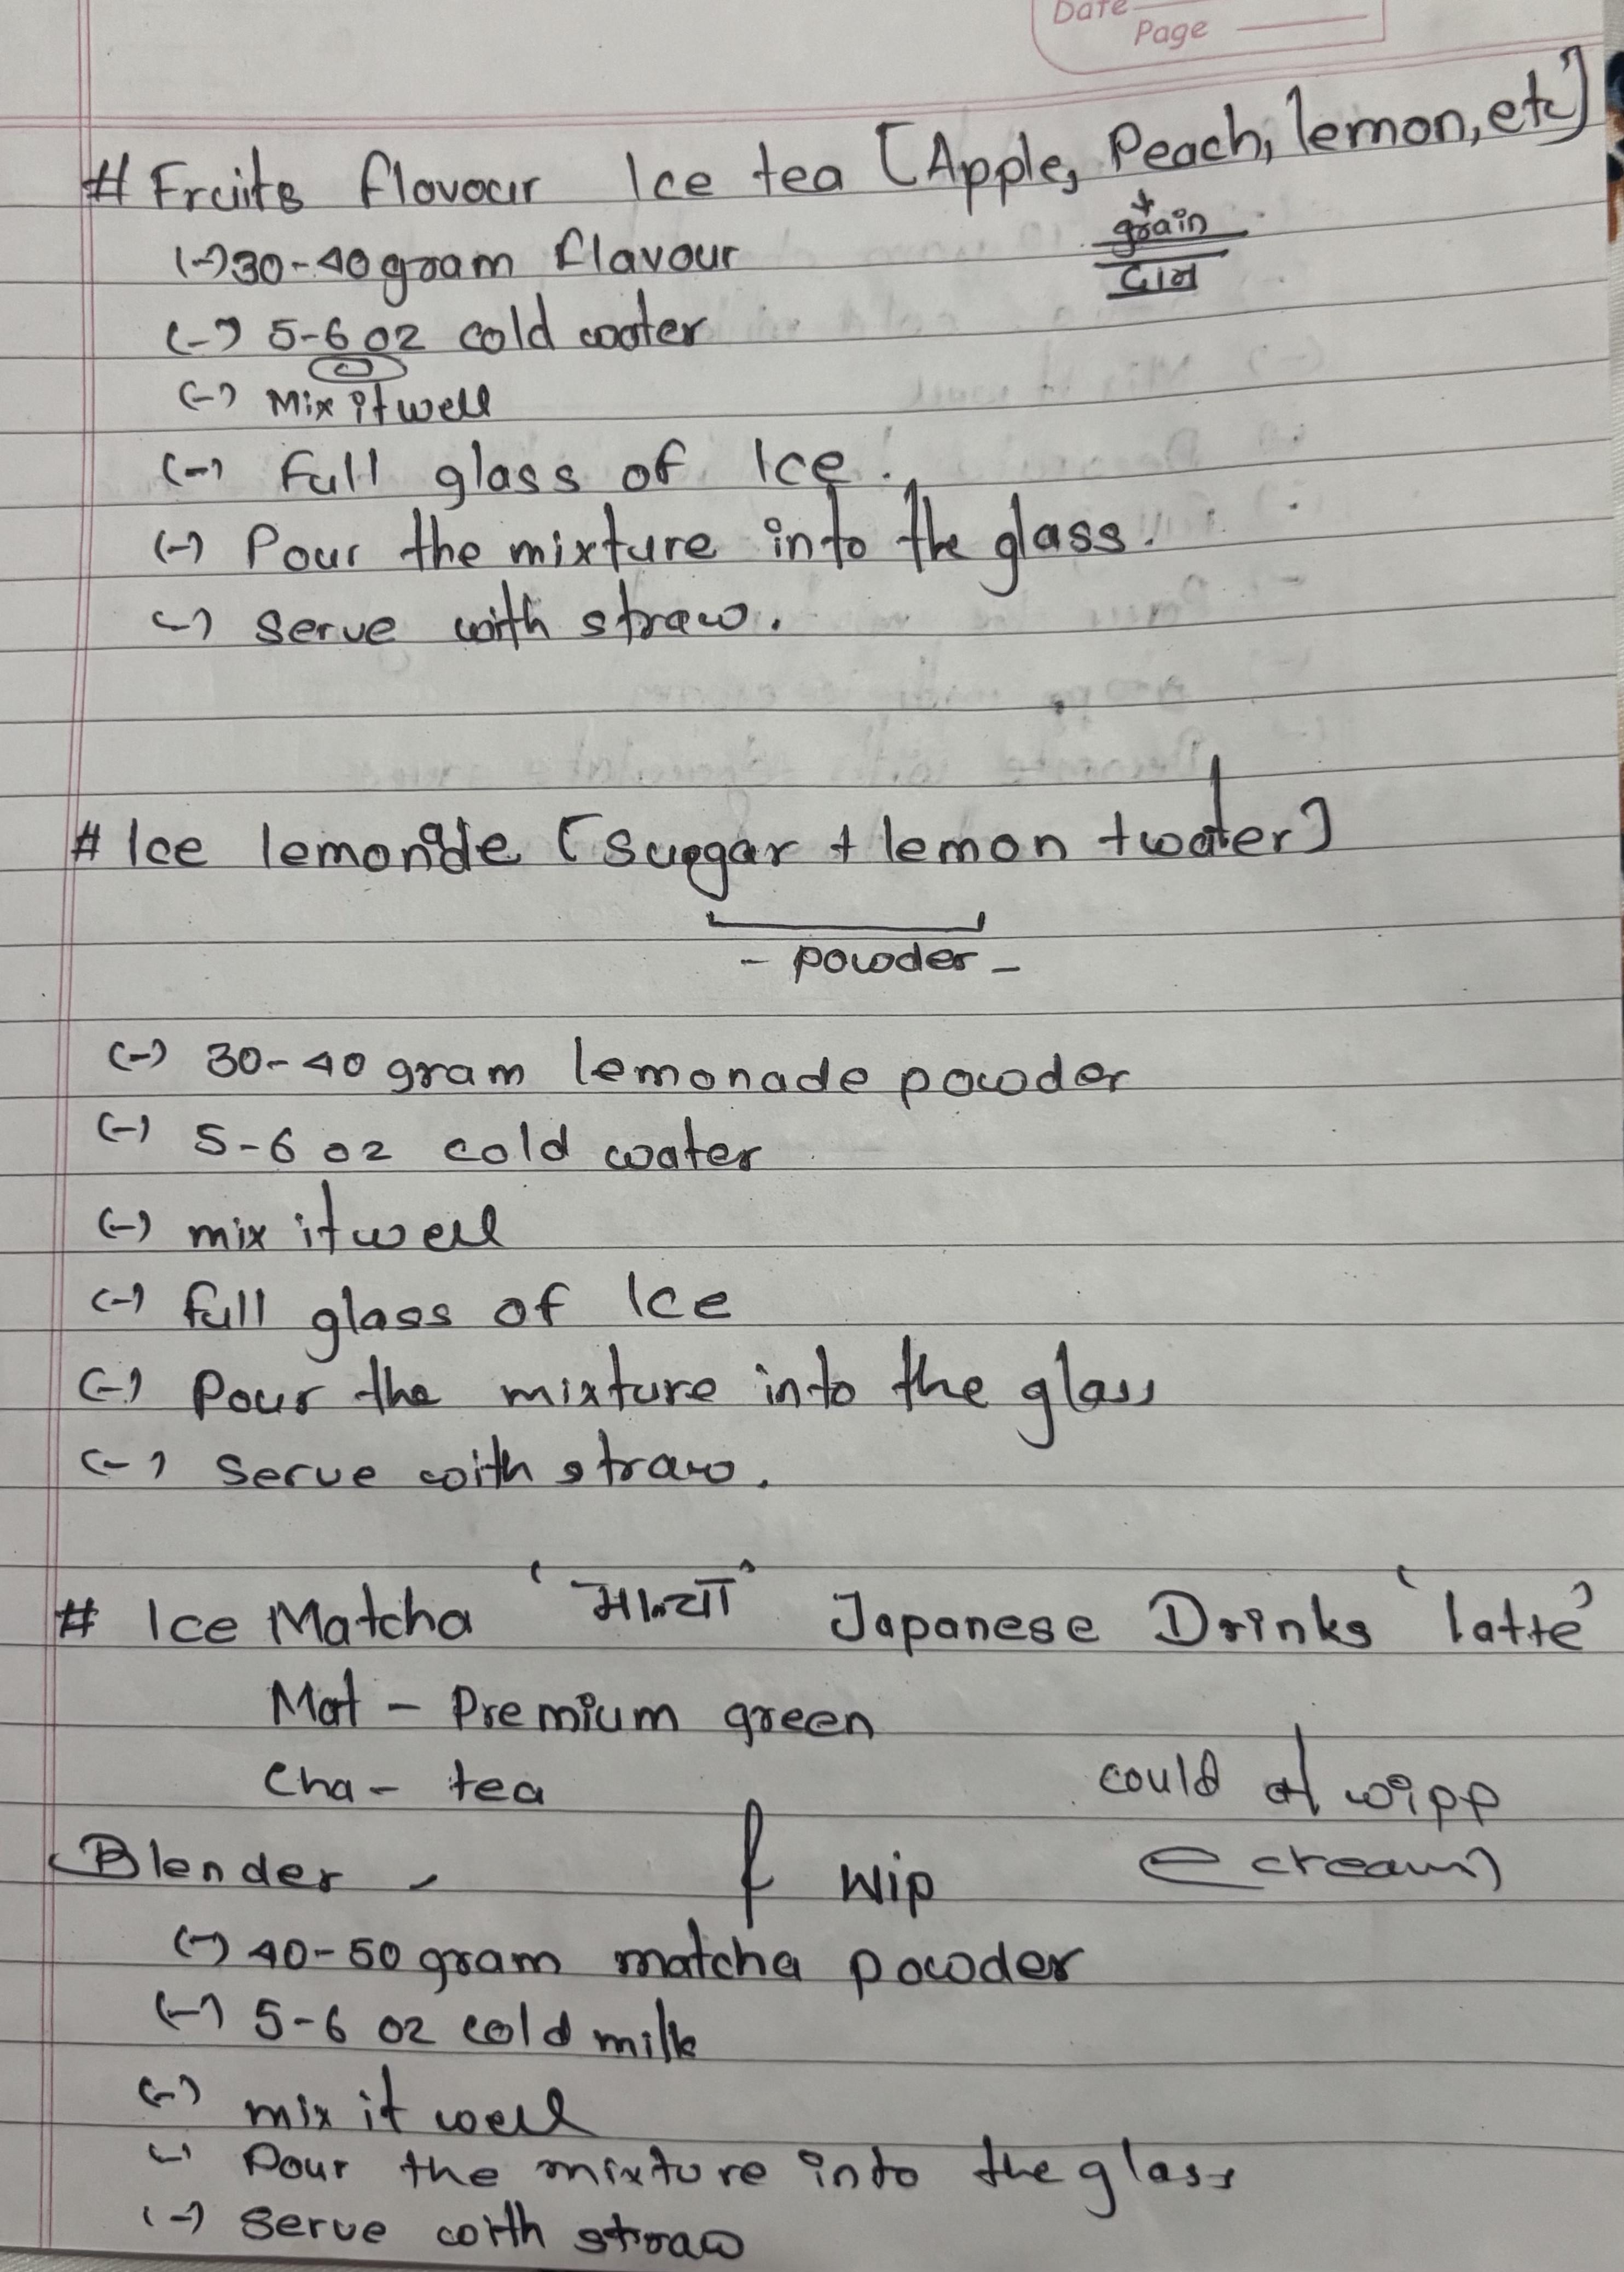 Date
Page
# Fruits flavour Ice tea [Apple, Peach, lemon, etc]
grain
दाना
(-) 30-40 gram flavour
(-) 5-6 oz cold water
(-) Mix it well
(-) Full glass of Ice.
(-) Pour the mixture into the glass.
(-) serve with straw.
# Ice lemonade [suggar + lemon + water]
- powder -
(-) 30-40 gram lemonade powder
(-) 5-6 oz cold water
(-) mix it well
(-) full glass of Ice
(-) Pour the mixture into the glass
(-) serve with straw.
# Ice Matcha 'माच्चा' Japanese Drinks 'latte'
Mat - Premium green
Cha - tea
could of wipp
cream)
Blender -
wip
(-) 40-50 gram matcha powder
(-) 5-6 oz cold milk
(-) mix it well
(-) Pour the mixture into the glass
(-) serve with straw